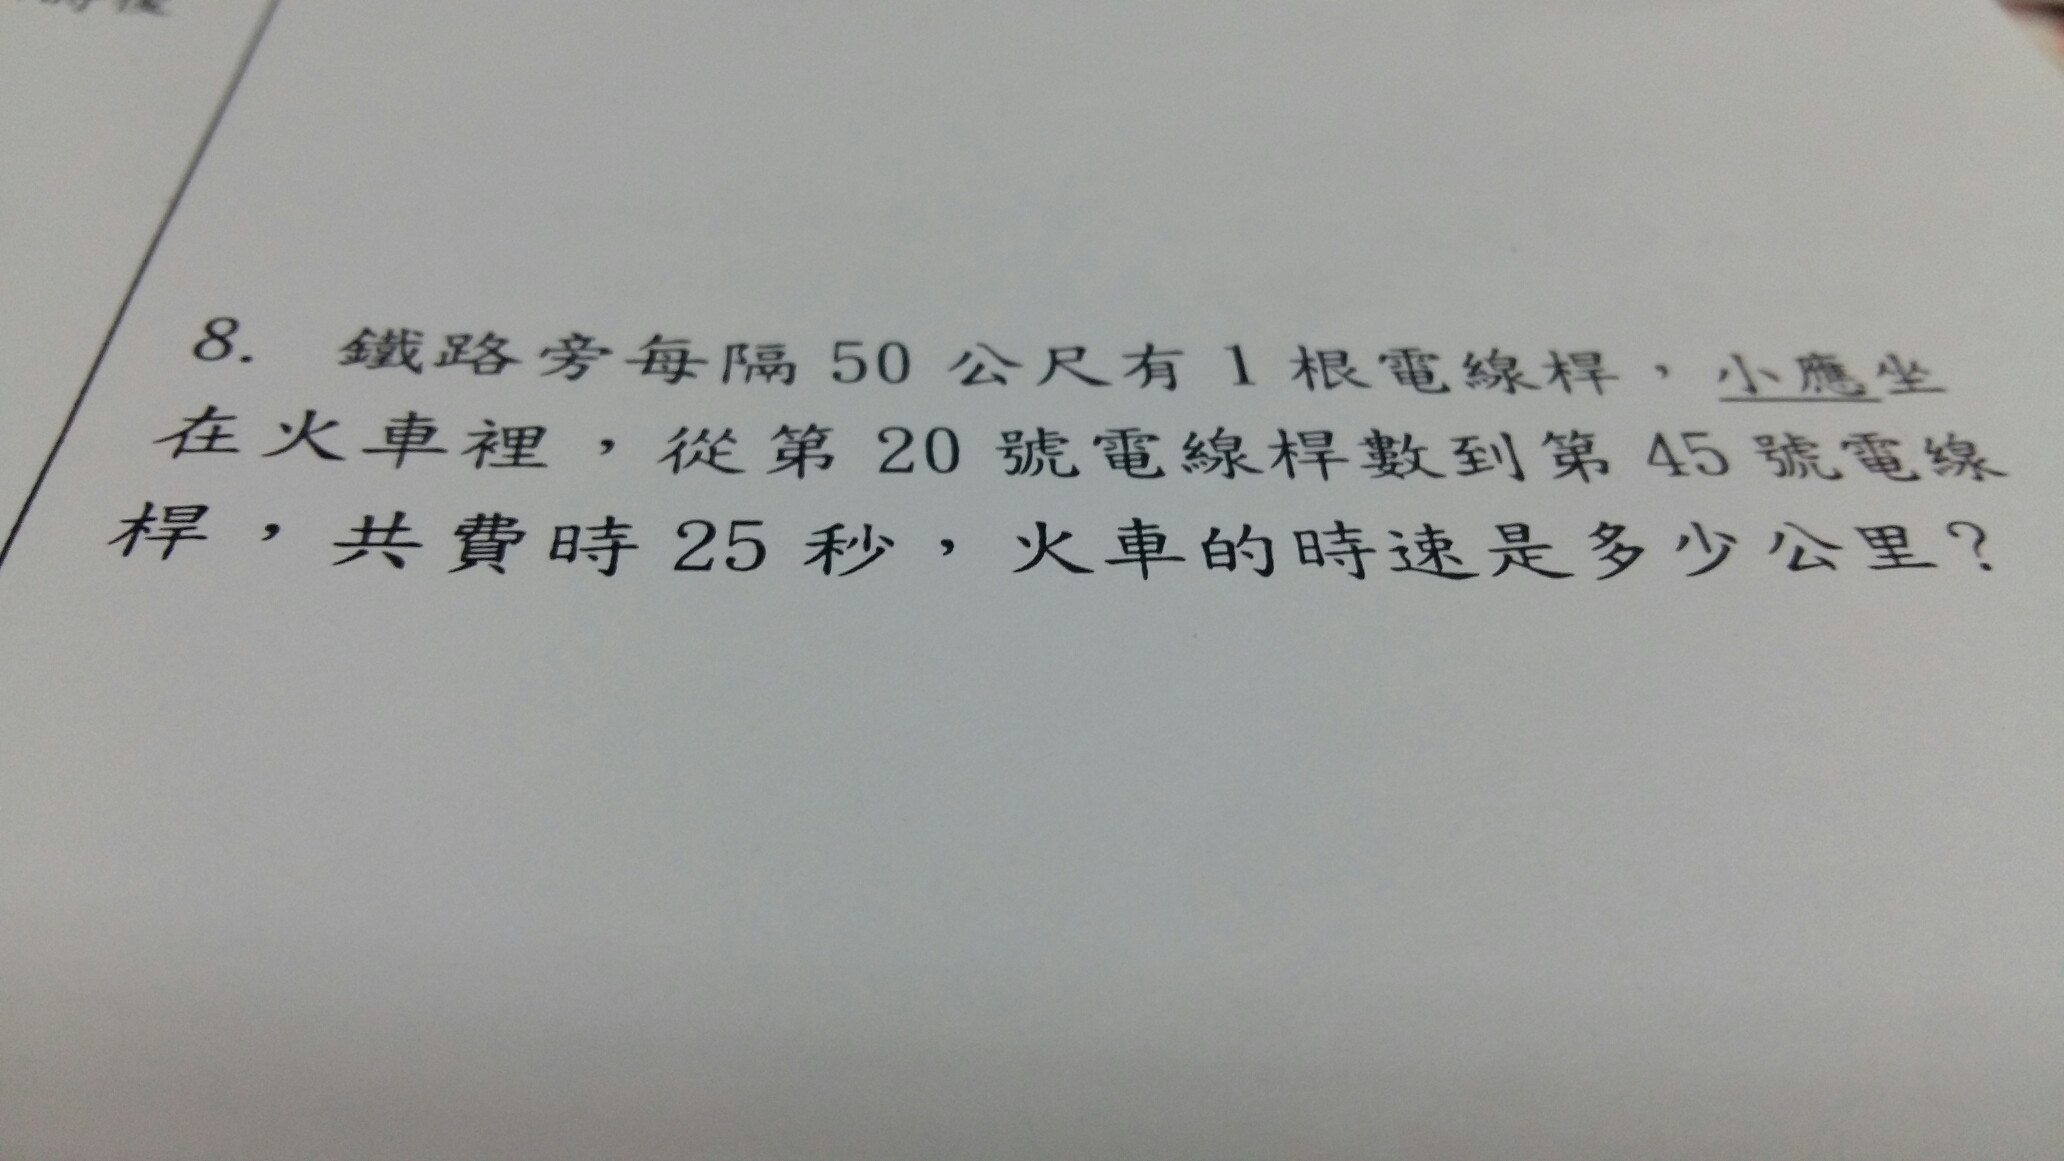 8. 鐵路旁每隔 50 公尺有 1 根電線桿，小應坐
在火車裡，從第 20 號電線桿數到第 45 號電線
桿，共費時 25 秒，火車的時速是多少公里？